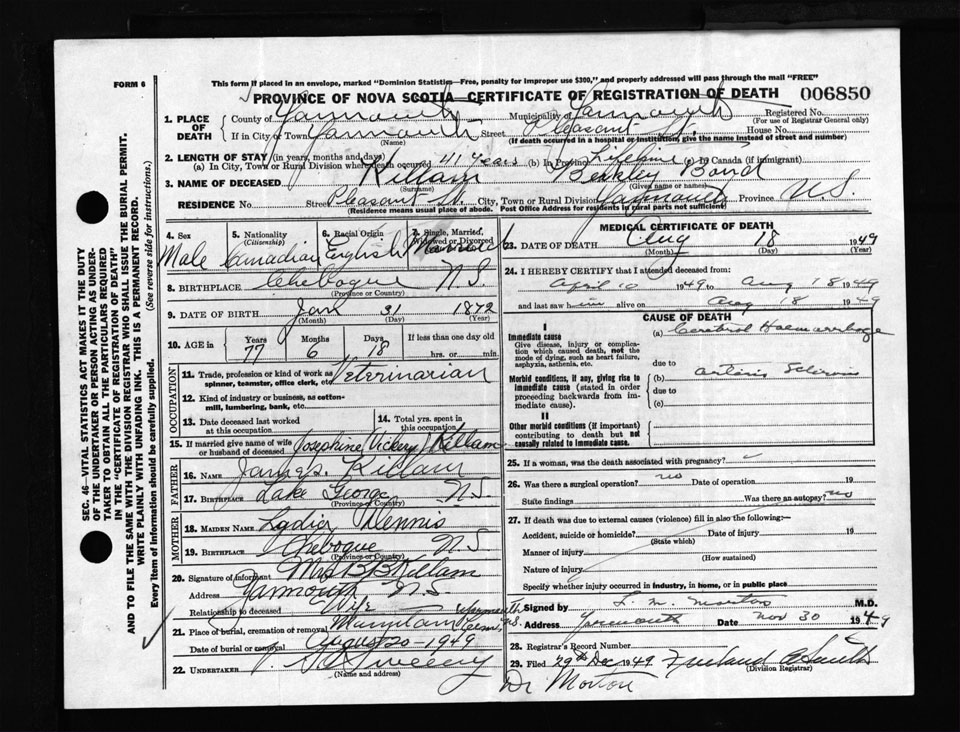 FORM 6
This form if placed in an envelope, marked "Dominion Statistics—Free, penalty for improper use $300," and properly addressed will pass through the mail "FREE"
PROVINCE OF NOVA SCOTIA—CERTIFICATE OF REGISTRATION OF DEATH 006850
1. PLACE OF DEATH
County of Yarmouth Municipality of Yarmouth Registered No.
(For use of Registrar General only)
If in City or Town Yarmouth Street Pleasant St. House No.
(Name) (If death occurred in a hospital or institution, give the name instead of street and number)
2. LENGTH OF STAY (in years, months and days)
(a) In City, Town or Rural Division where death occurred 41 years (b) In Province Lifetime (c) In Canada (if immigrant)
3. NAME OF DECEASED Killam Berkley Bond
(Surname) (Given name or names)
RESIDENCE No. Street Pleasant St. City, Town or Rural Division Yarmouth Province N.S.
(Residence means usual place of abode. Post Office Address for residents in rural parts not sufficient)
4. Sex
Male
5. Nationality (Citizenship)
Canadian
6. Racial Origin
English
7. Single, Married, Widowed or Divorced
Married
8. BIRTHPLACE Chebogue N.S.
(Province or Country)
9. DATE OF BIRTH Jan 31 1872
(Month) (Day) (Year)
10. AGE in Years 77 Months 6 Days 18 If less than one day old hrs. or min.
OCCUPATION
11. Trade, profession or kind of work as spinner, teamster, office clerk, etc. Veterinarian
12. Kind of industry or business, as cotton-mill, lumbering, bank, etc.
13. Date deceased last worked at this occupation
14. Total yrs. spent in this occupation
15. If married give name of wife or husband of deceased Josephine Vickery Killam
FATHER
16. NAME Killam
17. BIRTHPLACE Lake George N.S.
(Province or Country)
MOTHER
18. MAIDEN NAME Lydia Dennis
19. BIRTHPLACE Chebogue N.S.
(Province or Country)
20. Signature of informant Mrs B B Killam
Address Yarmouth N.S.
Relationship to deceased Wife
21. Place of burial, cremation or removal Cem, Yarmouth N.S.
Date of burial or removal August 20-1949
22. UNDERTAKER Sweeny
(Name and address)
MEDICAL CERTIFICATE OF DEATH
23. DATE OF DEATH Aug 18 1949
(Month) (Day)
24. I HEREBY CERTIFY that I attended deceased from:
April 10 1949 to Aug 18 1949
and last saw him alive on Aug 18 1949
CAUSE OF DEATH
I
Immediate cause
Give disease, injury or complication which caused death, not the mode of dying, such as heart failure, asphyxia, asthenia, etc.
(a) Cerebral Haemorrhage
due to
Morbid conditions, if any, giving rise to immediate cause (stated in order proceeding backwards from immediate cause).
(b) Arterio Sclerosis
due to
(c)
II
Other morbid conditions (if important) contributing to death but not causally related to immediate cause.
25. If a woman, was the death associated with pregnancy?
26. Was there a surgical operation? no Date of operation 19
State findings Was there an autopsy? no
27. If death was due to external causes (violence) fill in also the following:—
Accident, suicide or homicide? Date of injury 19
(State which)
Manner of injury
(How sustained)
Nature of injury
Specify whether injury occurred in industry, in home, or in public place
Signed by L. M. Morton M.D.
Address Yarmouth Date Nov 30 1949
28. Registrar's Record Number
29. Filed 29th Dec 1949 Smith
(Division Registrar)
Dr Morton
SEC. 46—VITAL STATISTICS ACT MAKES IT THE DUTY
OF THE UNDERTAKER OR PERSON ACTING AS UNDER-
TAKER TO OBTAIN ALL THE PARTICULARS REQUIRED
IN THE "CERTIFICATE OF REGISTRATION OF DEATH"
AND TO FILE THE SAME WITH THE DIVISION REGISTRAR WHO SHALL ISSUE THE BURIAL PERMIT.
WRITE PLAINLY WITH UNFADING INK. THIS IS A PERMANENT RECORD.
Every item of Information should be carefully supplied. (See reverse side for instructions.)